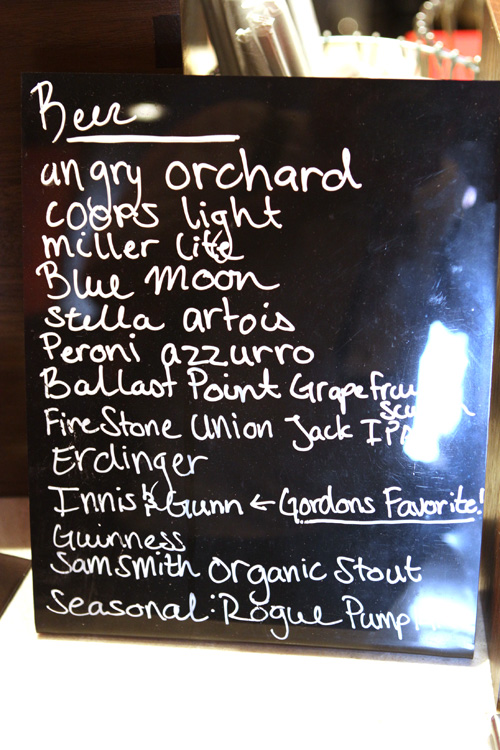 Beer
angry orchard
coors light
miller lite
Blue moon
stella artois
Peroni azzurro
Ballast Point Grapefruit
Sculpin
FireStone Union Jack IPA
Erdinger
Innis & Gunn ← Gordons Favorite!
Guinness
Samsmith Organic Stout
Seasonal: Rogue